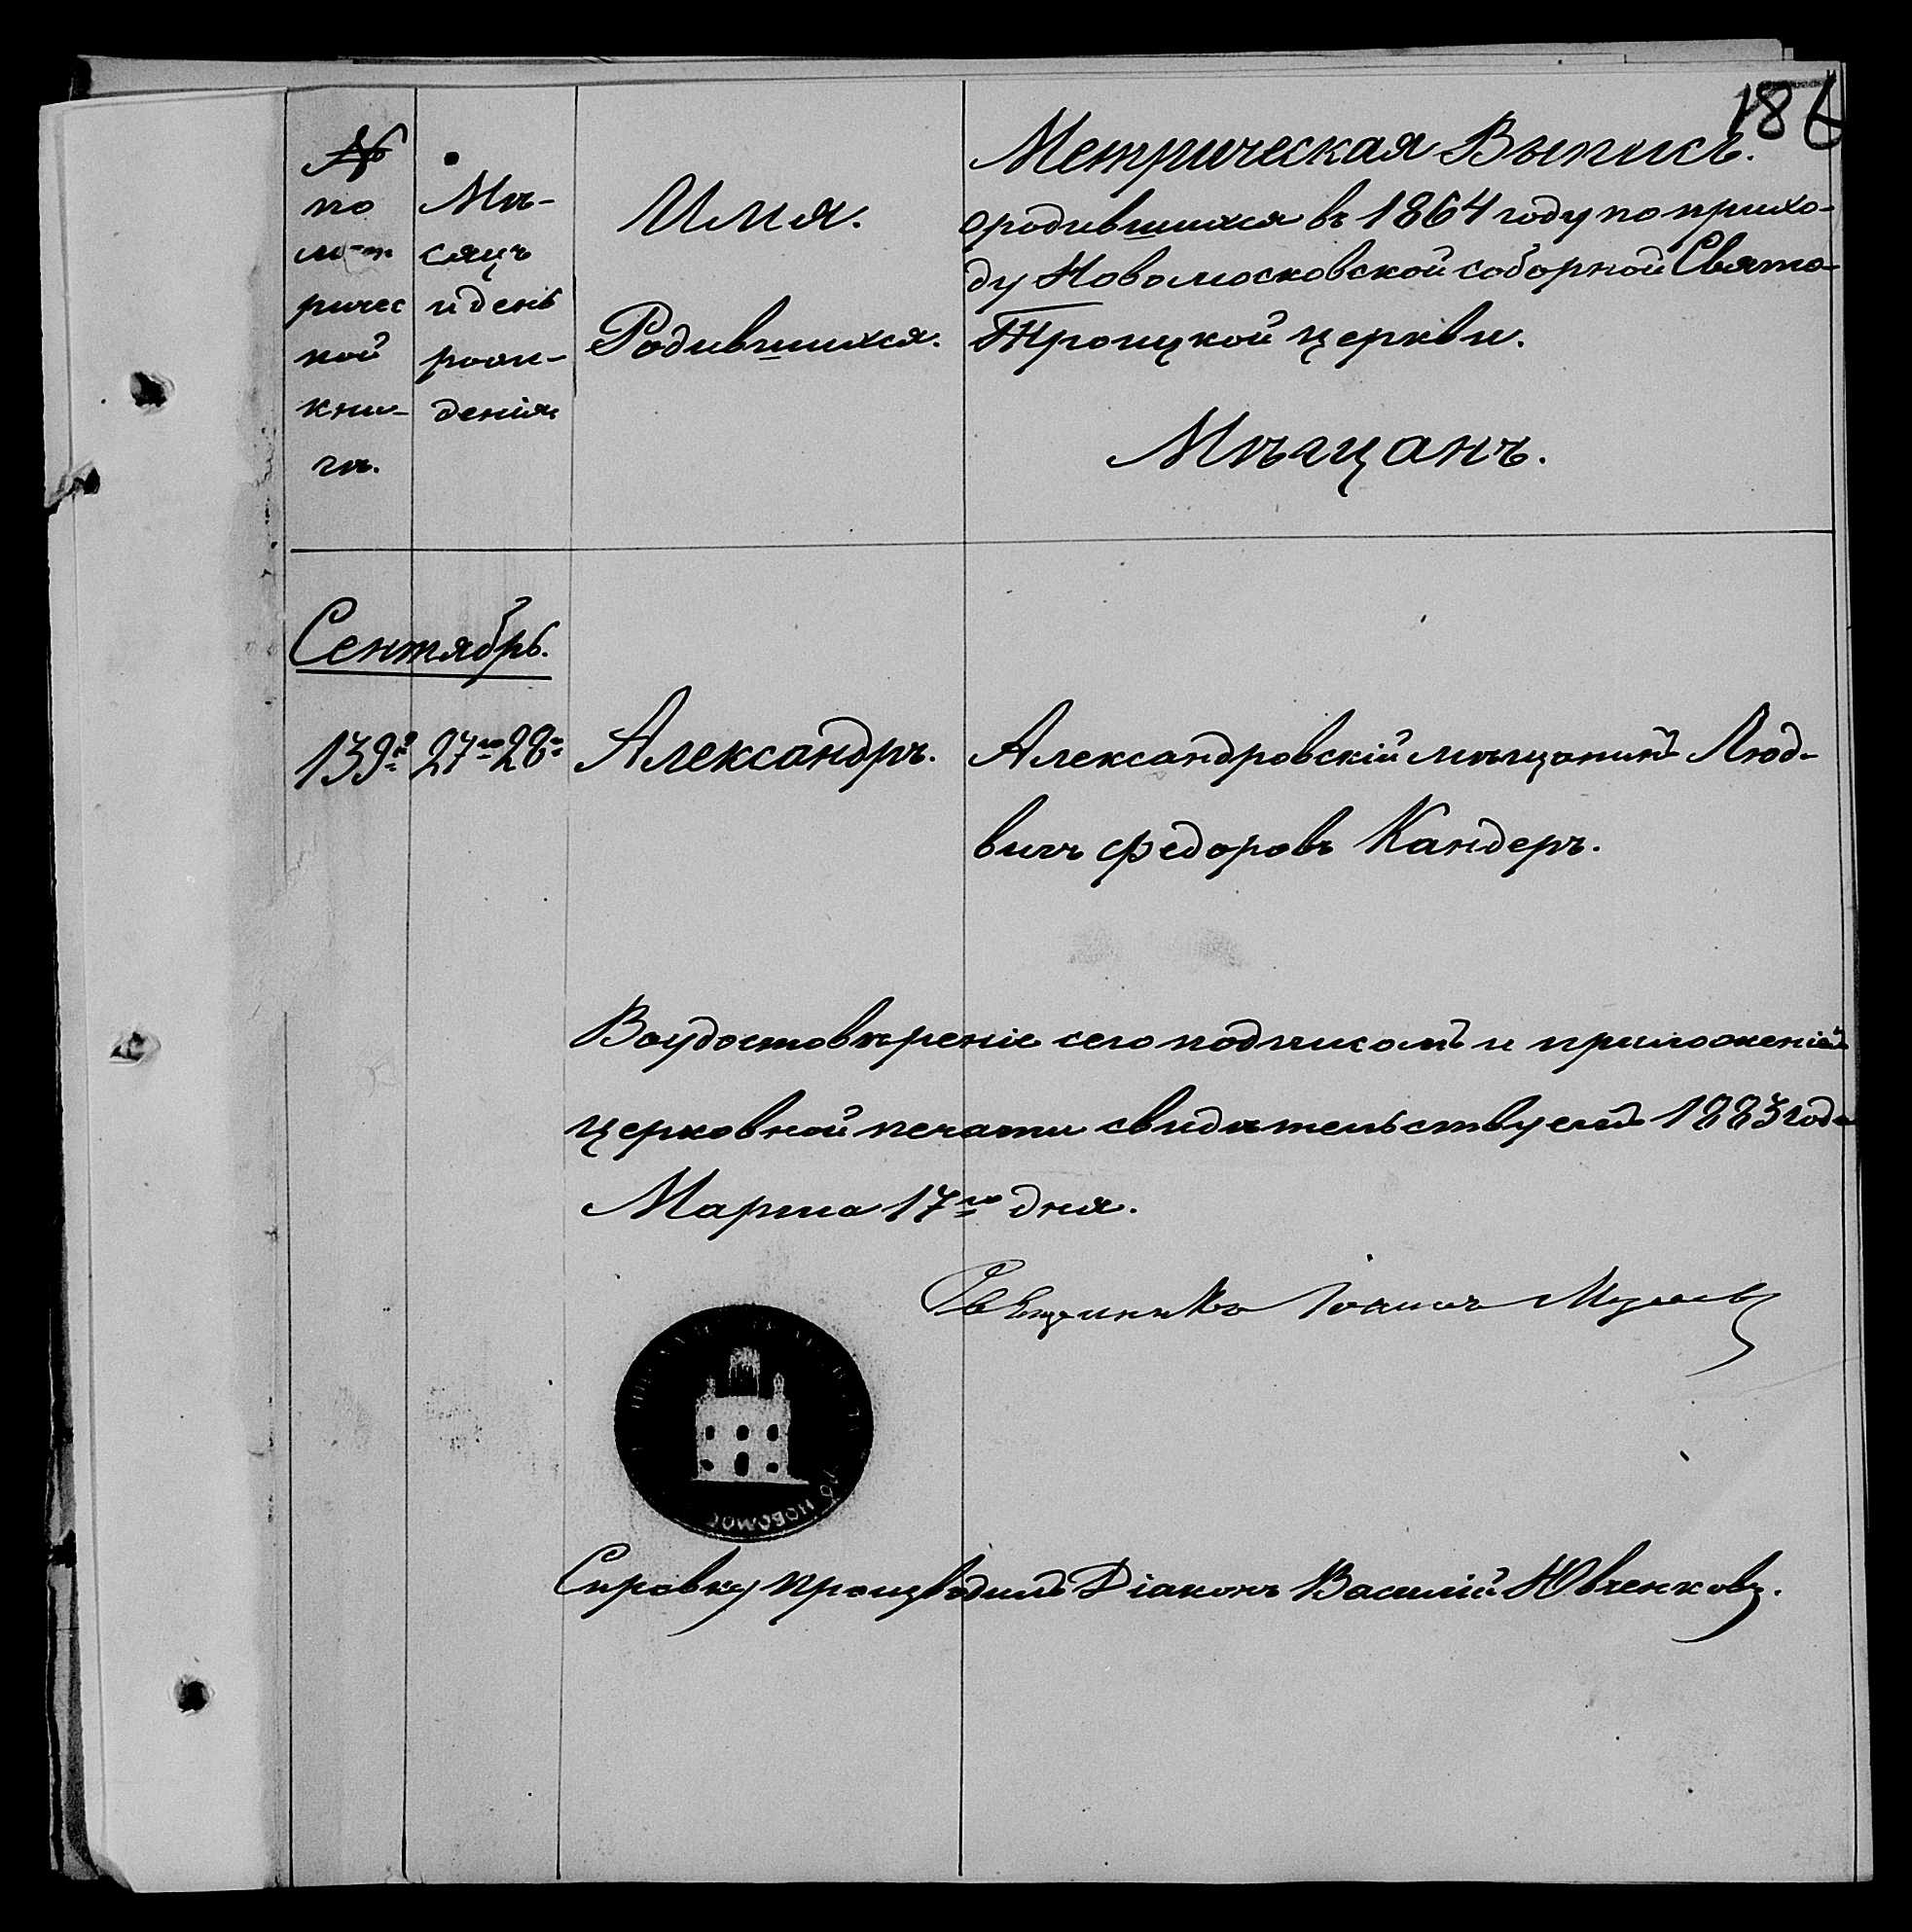 186
№
по
мет
ричес
кой
кни-
гѣ.
Мѣ-
сяцъ
и день
рож-
денія
Имя.
Родившихся.
Метрическая Выпись.
о родившихся въ 1864 году по прихо-
ду Новомосковской соборной Свято-
Троицкой церкви.
Мѣщанъ.
Сентябрь.
139й 27го 28го Александръ. Александровскій мѣщанинъ Люд-
вигъ Федоровъ Кандеръ.
Во удостовѣреніе сего подписомъ и приложеніемъ
церковной печати свидѣтельствуемъ 1883 года
Марта 17го дня.
Священникъ Іоаннъ
НОВОМОС
Справку производилъ Діаконъ Василій Ювченковъ.